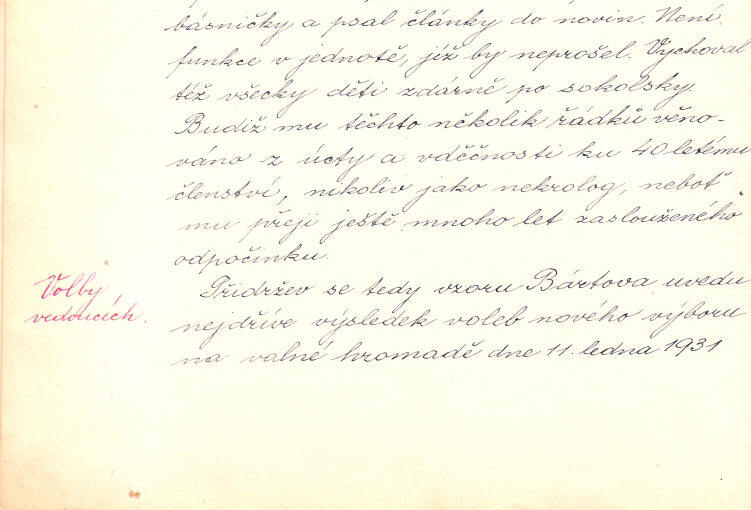 básničky a psal články do novin. Není
funkce v jednotě, jíž by neprošel. Vychoval
též všecky děti zdárně po sokolsky.
Budiž mu těchto několik řádků věno-
váno z úcty a vděčnosti ku 40letému
členství, nikoliv jako nekrolog, neboť
mu přeji ještě mnoho let zaslouženého
odpočinku.
Volby
vedoucích.
Přidržev se tedy vzoru Bártova uvedu
nejdříve výsledek voleb nového výboru
na valné hromadě dne 11. ledna 1931